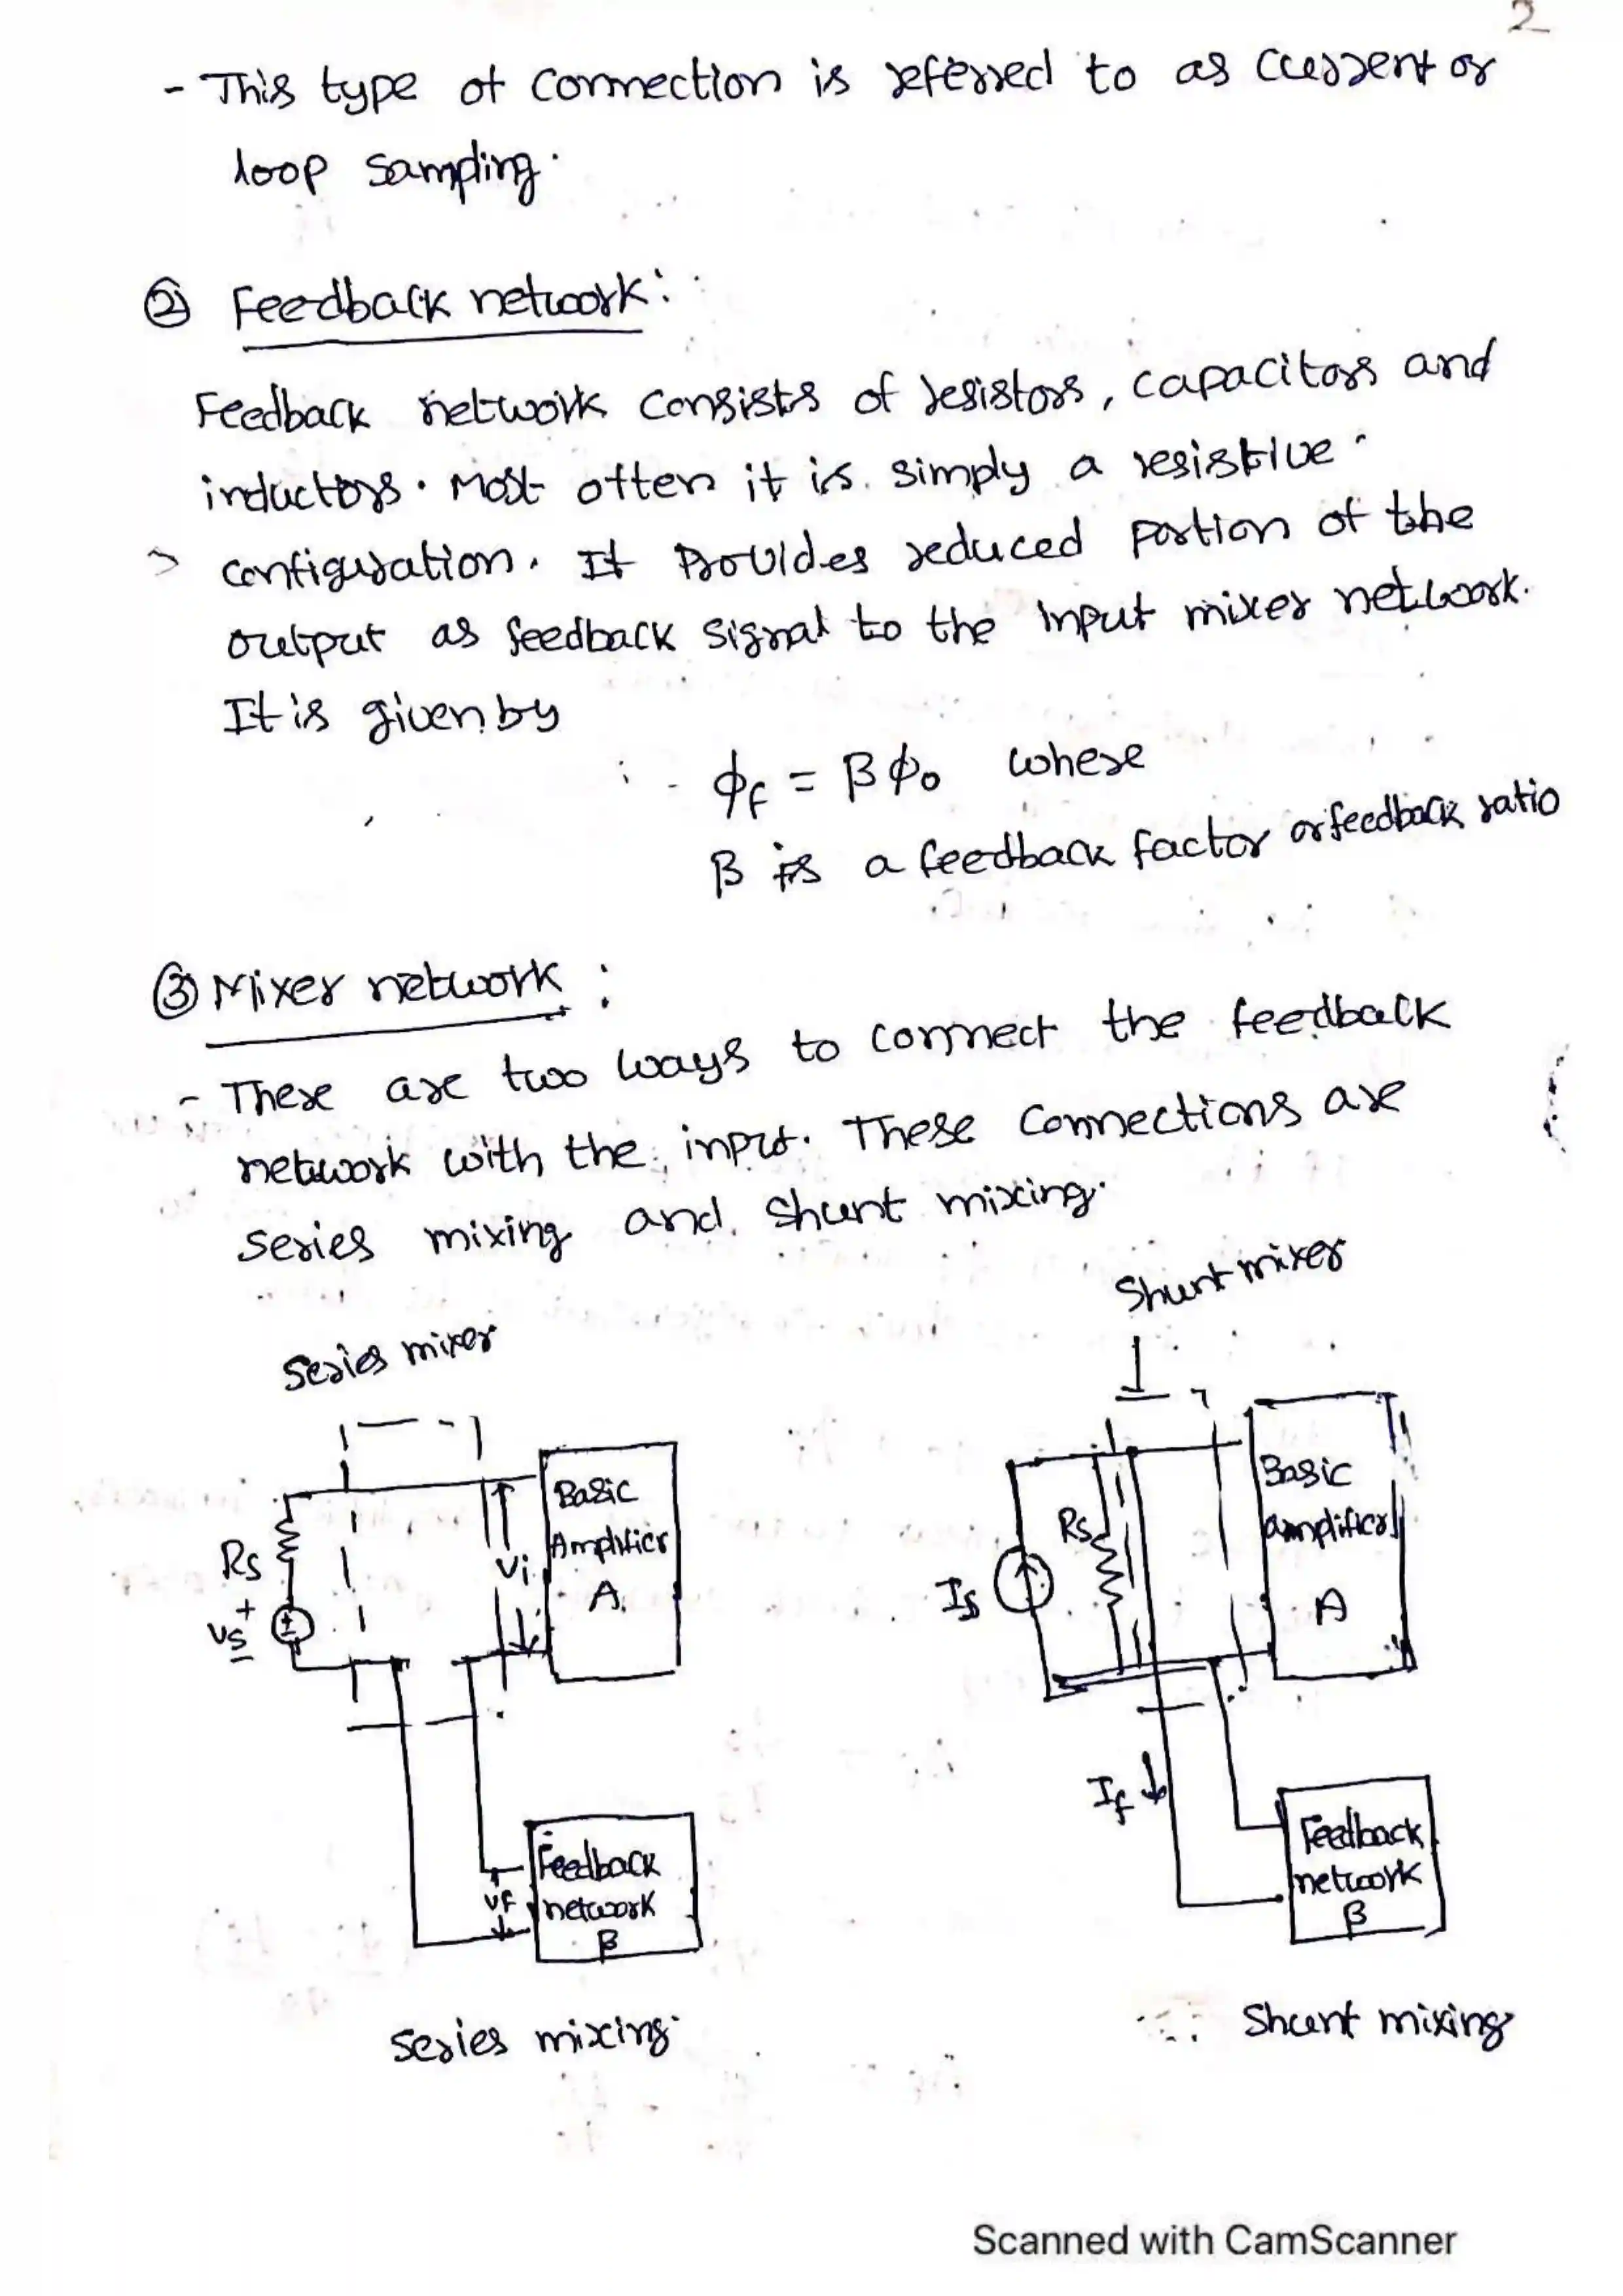 2
- This type of connection is referred to as current or
loop sampling.
② Feedback network:
Feedback network consists of resistors, capacitors and
inductors. Most often it is simply a resistive
configuration. It provides reduced portion of the
output as feedback signal to the input mixer network.
It is given by
ϕf = βϕo where
β is a feedback factor or feedback ratio
③ Mixer network :
- There are two ways to connect the feedback
network with the input. These connections are
series mixing and shunt mixing.
Series mixer
Rs
+
Vs
-
Vi
Basic
Amplifier
A.
Vf
Feedback
network
β
series mixing
Shunt mixer
Is
Rs
Basic
amplifier
A
If
Feedback
network
β
Shunt mixing
Scanned with CamScanner